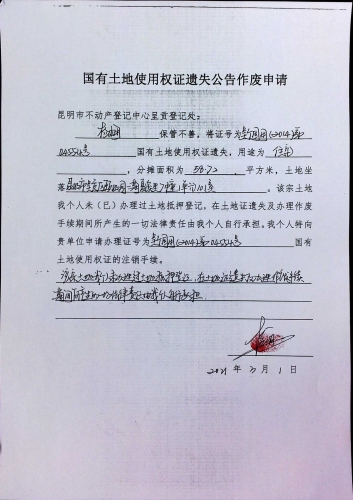 国有土地使用权证遗失公告作废申请
昆明市不动产登记中心呈贡登记处：
保管不善，将证号为呈国用(2014)第
0435543号 国有土地使用权证遗失，用途为 住宅
，分摊面积为 38.72 平方米，土地坐
落 7幢1单元101号 。该宗土地
我个人未（已）办理过土地抵押登记，在土地证遗失及办理作废
手续期间所产生的一切法律责任由我个人自行承担。我个人特向
贵单位申请办理证号为呈国用(2014)第0435543号 国有
土地使用权证的注销手续。
该宗土地我个人未办理过土地抵押登记，在土地证遗失及办理作废手续
期间所产生的一切法律责任由我个人自行承担
2021 年 3 月 1 日